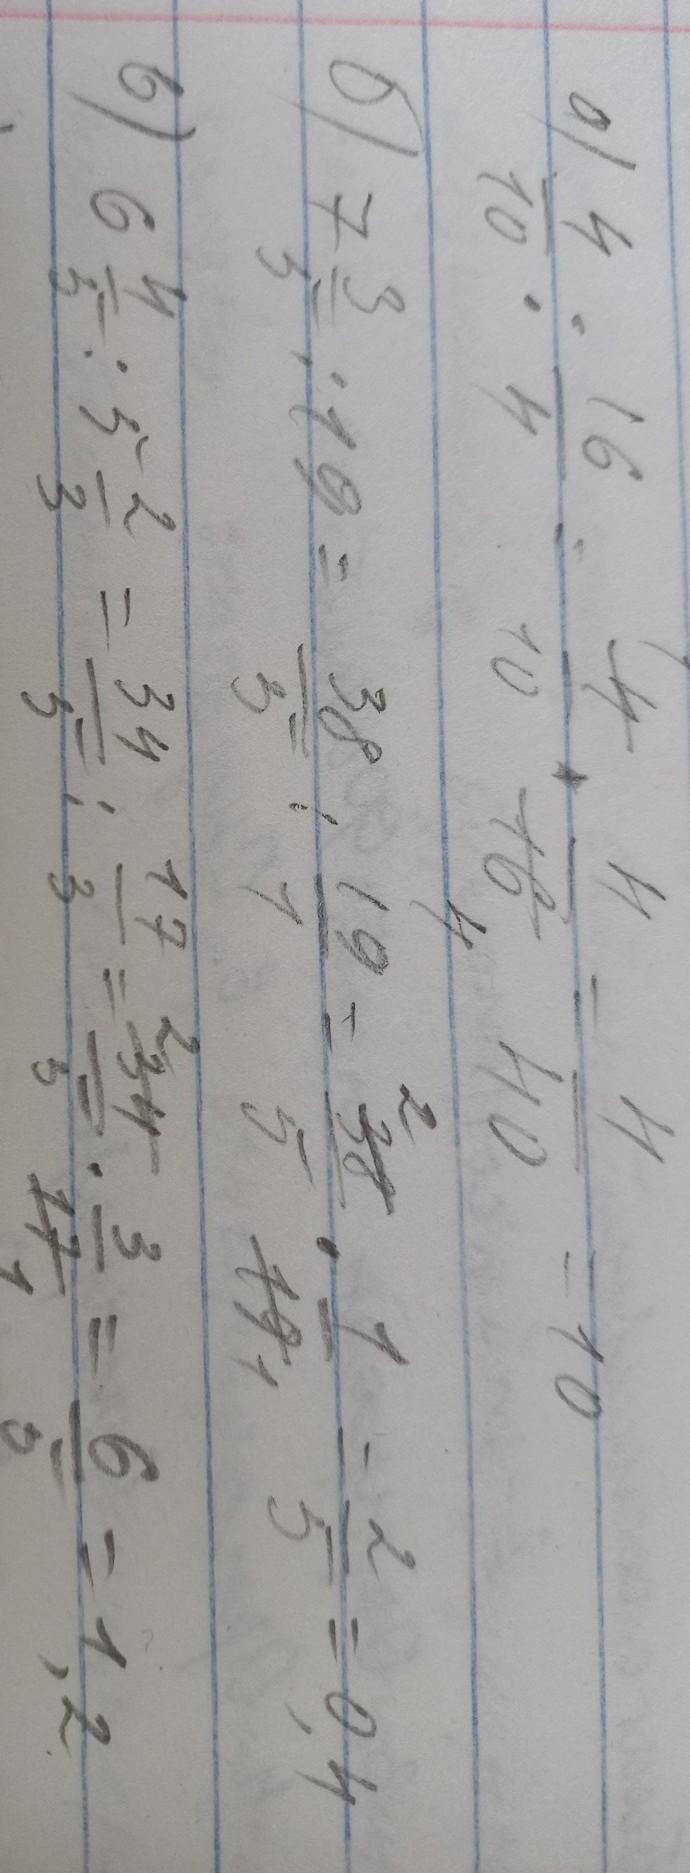 а) 4/10 : 16/4 = 4/10 · 4/16 4 = 4/40 = 10
б) 7 3/5 : 19 = 38/5 : 19/1 = 2 38/5 · 1/19 1 = 2/5 = 0,4
в) 6 4/5 : 5 2/3 = 34/5 : 17/3 = 2 34/5 · 3/17 1 = 6/5 = 1,2